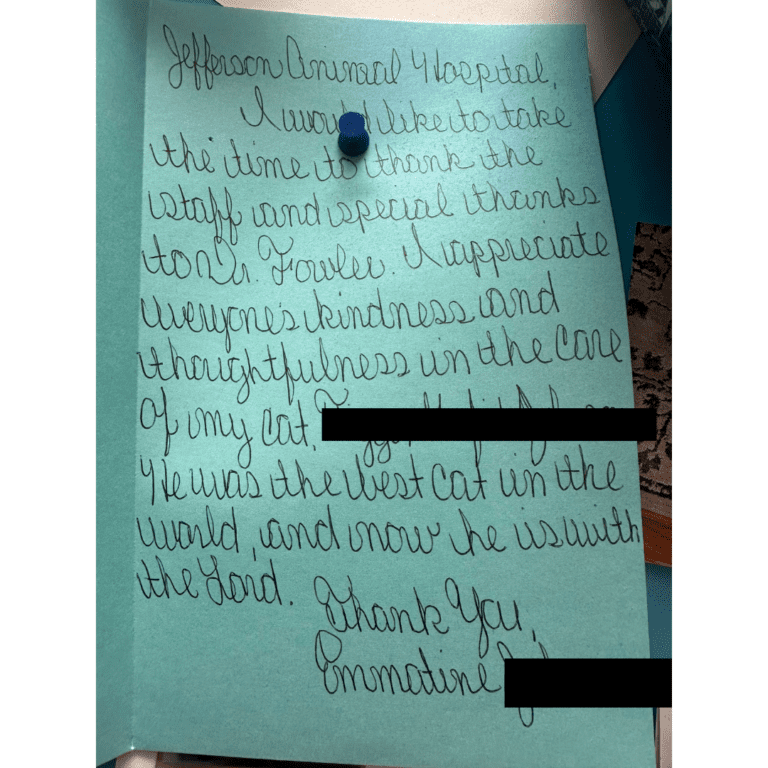 Jefferson Animal Hospital,
I would like to take
the time to thank the
staff and special thanks
to Dr. Fowler. I appreciate
everyone's kindness and
thoughtfulness in the care
of my cat,
He was the best cat in the
world, and now he is with
the Lord.
Thank You,
Emmatine